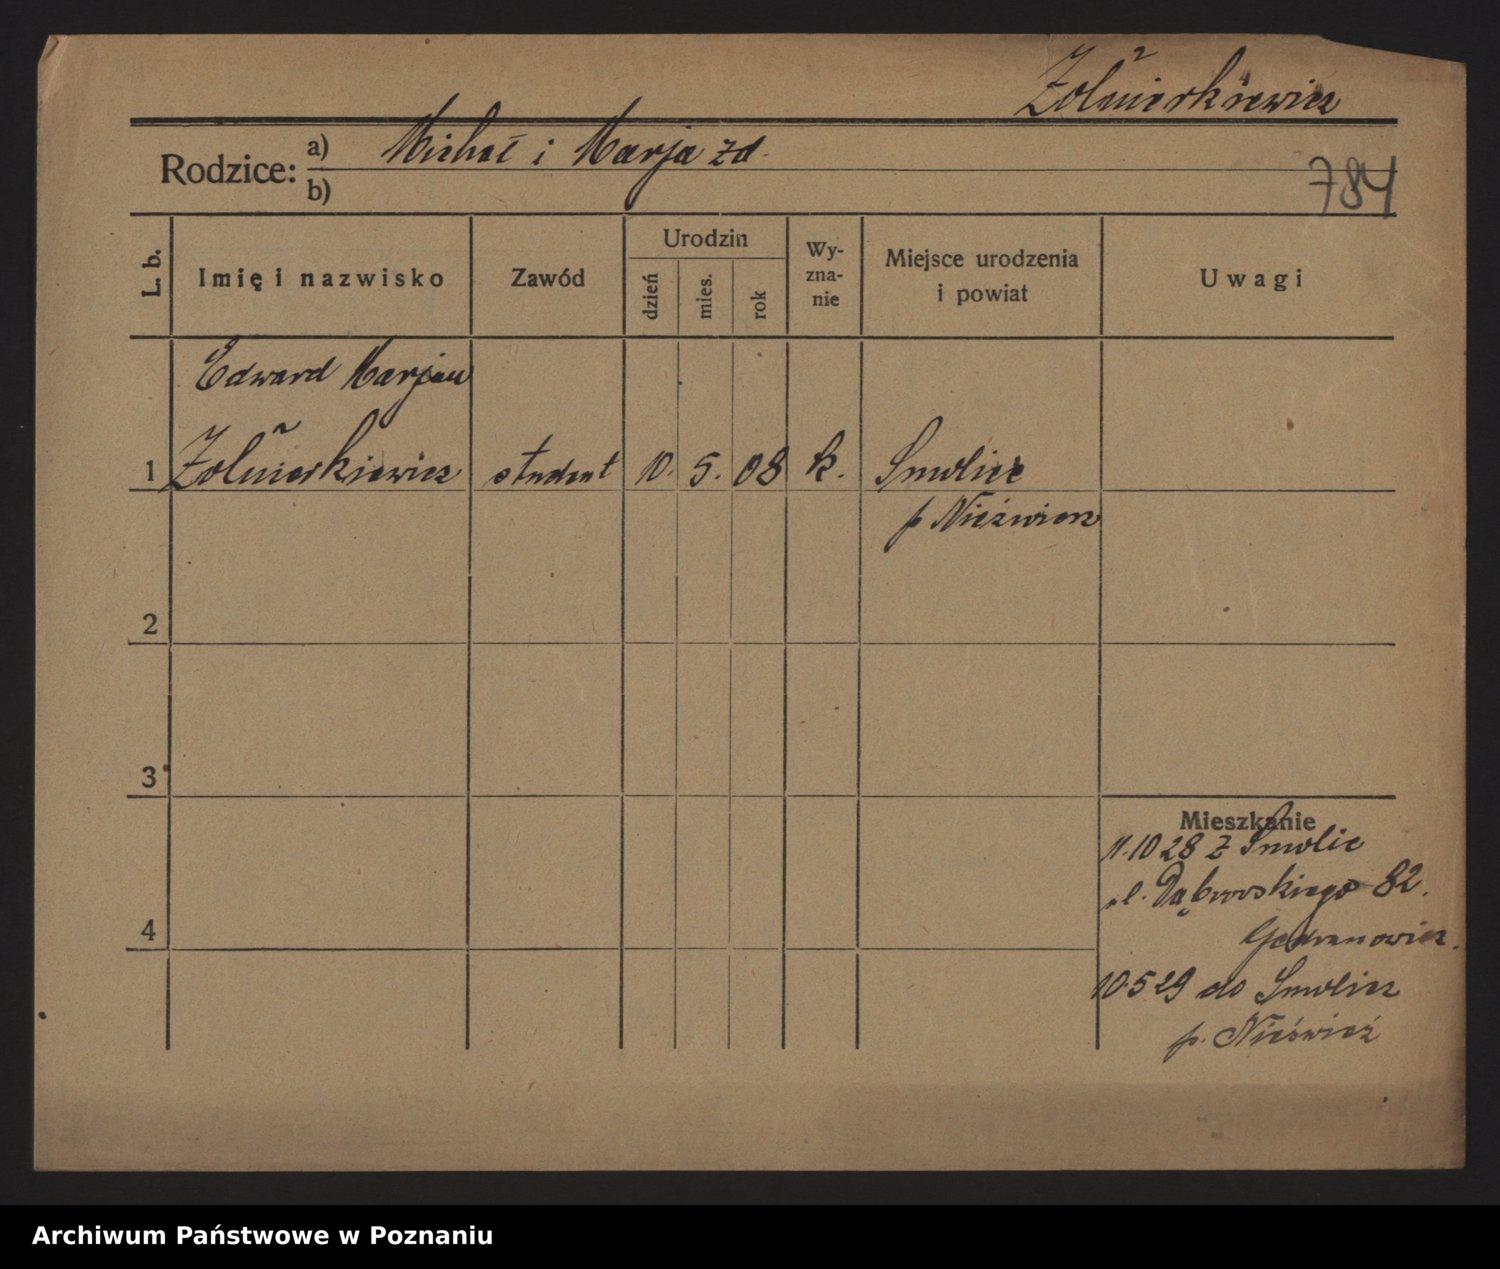 Żołnierkiewicz
Rodzice: a) Michał i Marja zd.
b)
784
L. b.
Imię i nazwisko
Zawód
Urodzin
dzień
mies.
rok
Wy-
zna-
nie
Miejsce urodzenia
i powiat
Uwagi
Edward Marjan
1 Żołnierkiewicz student 10. 5. 08 k. Smolice
p Nieświerz
2
3
4
Mieszkanie
11.10 28 z Smolic
ul. Dąbrowskiego 82.
10.5 29 do Smolic
p. Nieśwież
Archiwum Państwowe w Poznaniu